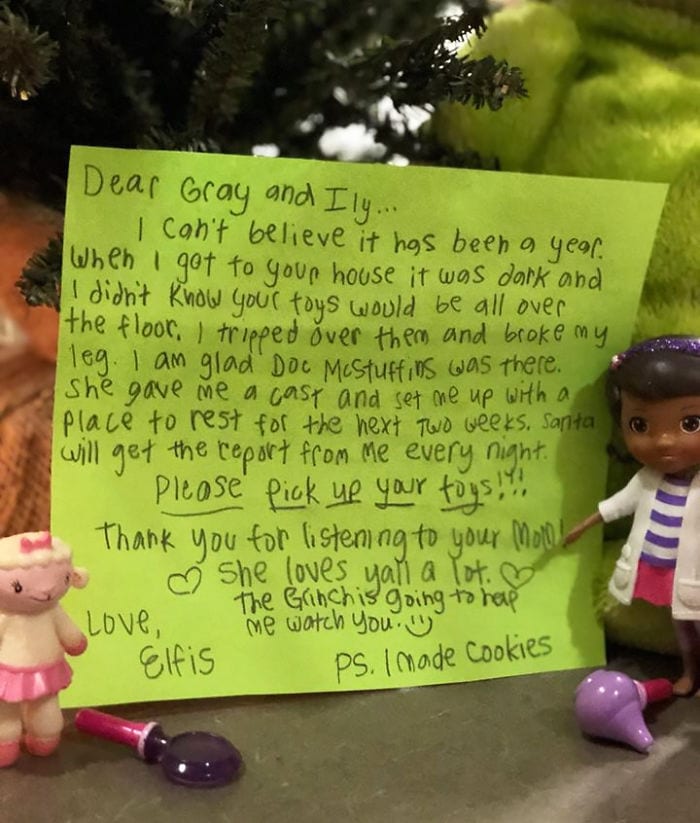 Dear Gray and Ily...
I can't believe it has been a year.
When I got to your house it was dark and
I didn't know your toys would be all over
the floor. I tripped over them and broke my
leg. I am glad Doc McStuffins was there.
She gave me a cast and set me up with a
place to rest for the next two weeks. Santa
will get the report from me every night.
Please pick up your toys!!!
Thank you for listening to your Mom!
♡ She loves yall a lot. ♡
The Grinch is going to help
me watch you. :)
Love,
Elfis
PS. I made cookies